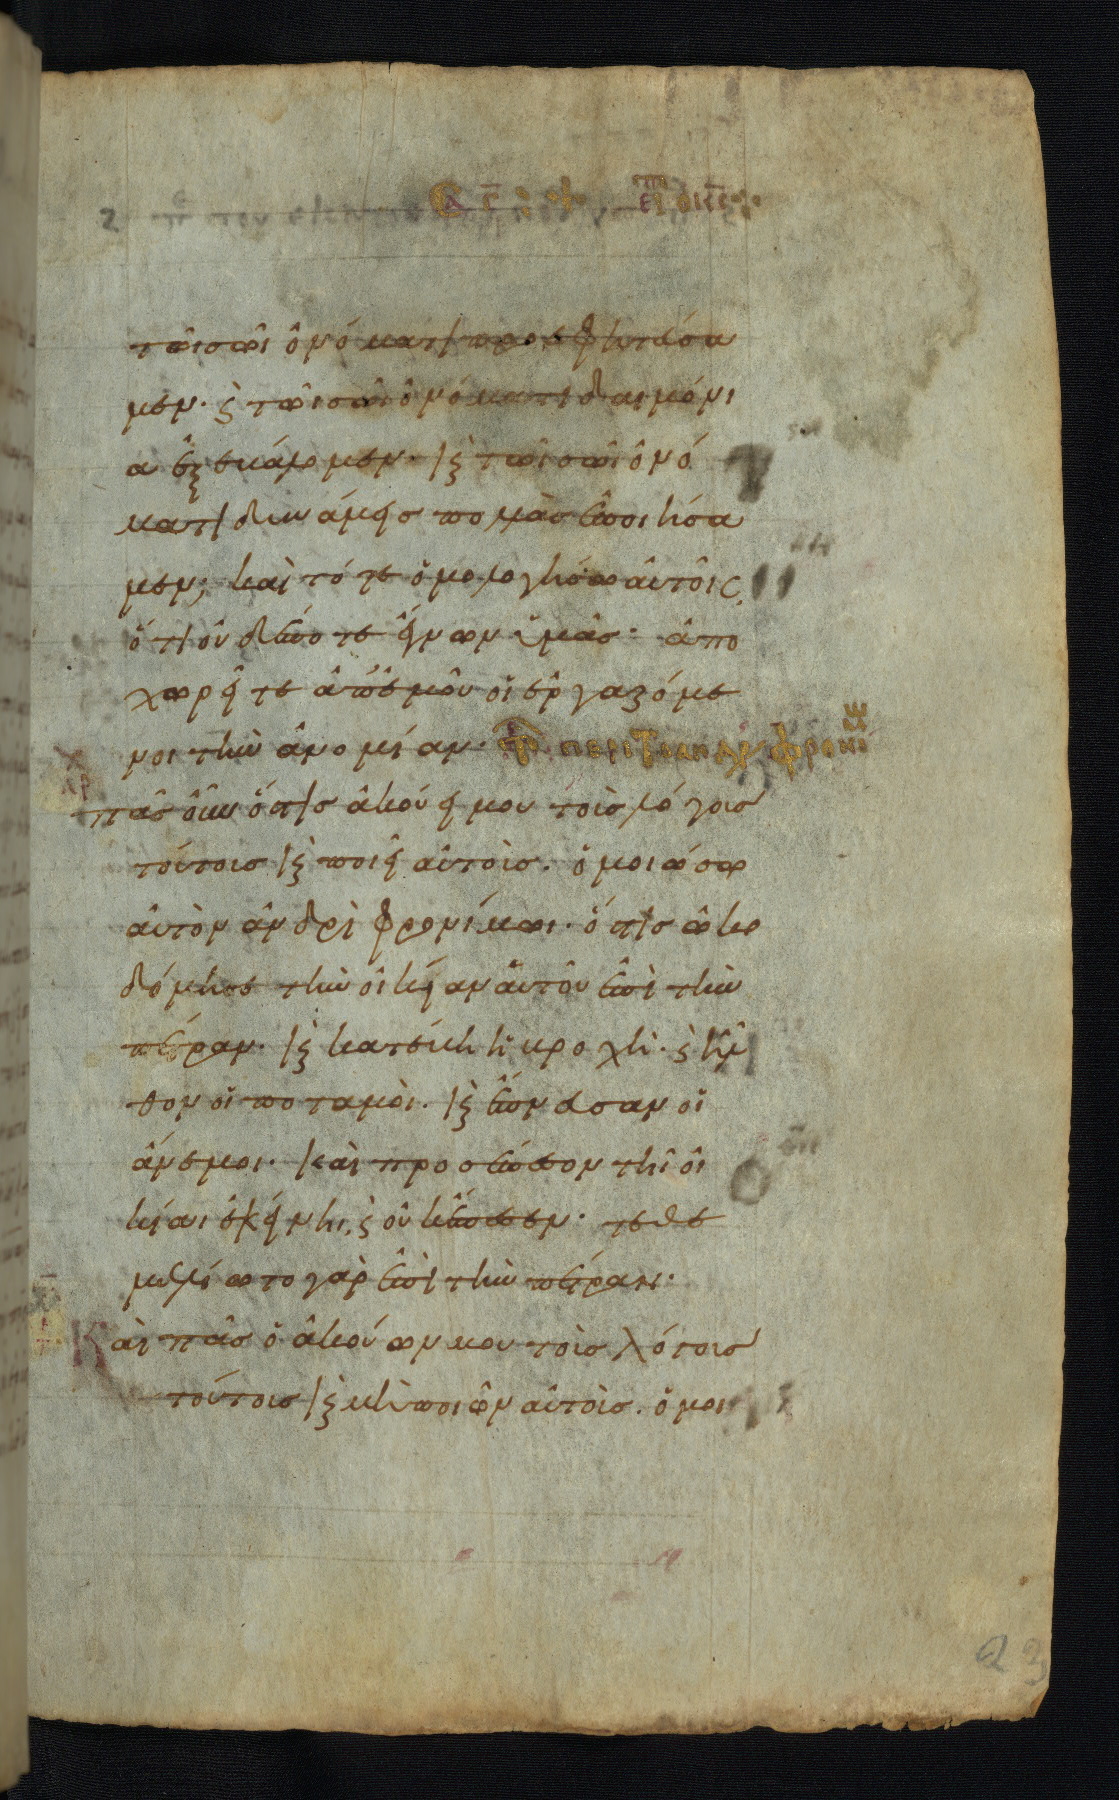 τῶι σῶι ὀνόματι προεφητεύσα
μεν· ϛ τῶι σῶι ὀνόματι δαιμόνι
α ἐξεβάλομεν· ϗ τῶι σῶι ὀνό
ματι δυνάμεις πολλὰς ἐποιήσα
μεν; καὶ τότε ὁμολογήσω αὐτοῖς,
ὅτι οὐδέποτε ἔγνων ὑμᾶς· ἀπο
χωρεῖτε ἀπ' ἐμοῦ οἱ ἐργαζόμε
νοι τὴν ἀνομίαν·
πᾶς οὖν ὅστις ἀκούει μου τοὺς λόγους
τούτους ϗ ποιεῖ αὐτούς. ὁμοιώσω
αὐτὸν ἀνδρὶ φρονίμωι· ὅστις ὠκο
δόμησε τὴν οἰκίαν αὐτοῦ ἐπὶ τὴν
πέτραν· ϗ κατέβη ἡ βροχὴ· ϛ ἦλ
θον οἱ ποταμοὶ· ϗ ἔπνευσαν οἱ
ἄνεμοι· καὶ προσέπεσον τῆ οἰ
κίαι ἐκείνηι, ϛ οὐκ ἔπεσεν· τεθε
μελίωτο γὰρ ἐπὶ τὴν πέτραν·
Καὶ πᾶς ὁ ἀκούων μου τοὺς λόγους
τούτους ϗ μὴ ποιῶν αὐτούς. ὁμοι
23